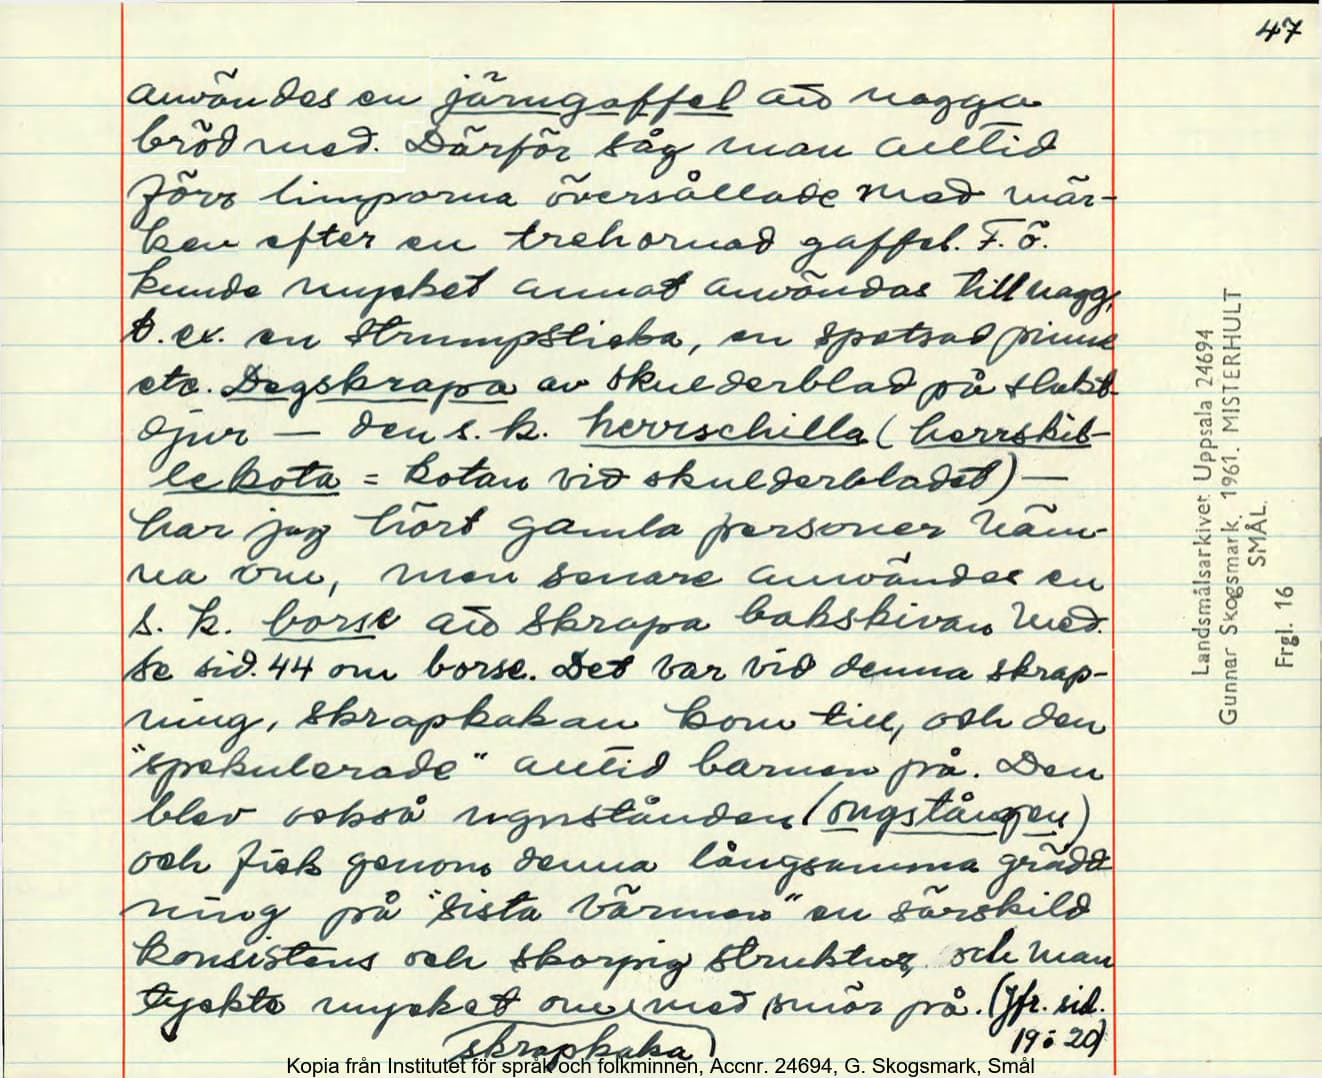 47
användes en järngaffel att nagga
bröd med. Därför såg man alltid
förr limporna översållade med mär-
ken efter en trehornad gaffel. F. ö.
kunde mycket annat användas till nagg,
t. ex. en strumpsticka, en spetsad pinne
etc. Degskrapa av skulderblad på slakt-
djur — den s. k. herrschilla (herrskil-
lekota = kotan vid skulderbladet) —
har jag hört gamla personer näm-
na om, men senare användes en
s. k. borse att skrapa bakskivan med.
Se sid. 44 om borse. Det var vid denna skrap-
ning, skrapkakan kom till, och den
"spekulerade" alltid barnen på. Den
blev också ugnstånden (ongstången)
och fick genom denna långsamma grädd
ning på "sista värmen" en särskild
konsistens och skorpig struktur, och man
tyckte mycket om med smör på. (Jfr. sid.
skrapkaka 19 o 20)
Landsmålsarkivet Uppsala 24694
Gunnar Skogsmark. 1961. MISTERHULT
SMÅL.
Frgl. 16
Kopia från Institutet för språk och folkminnen, Accnr. 24694, G. Skogsmark, Smål